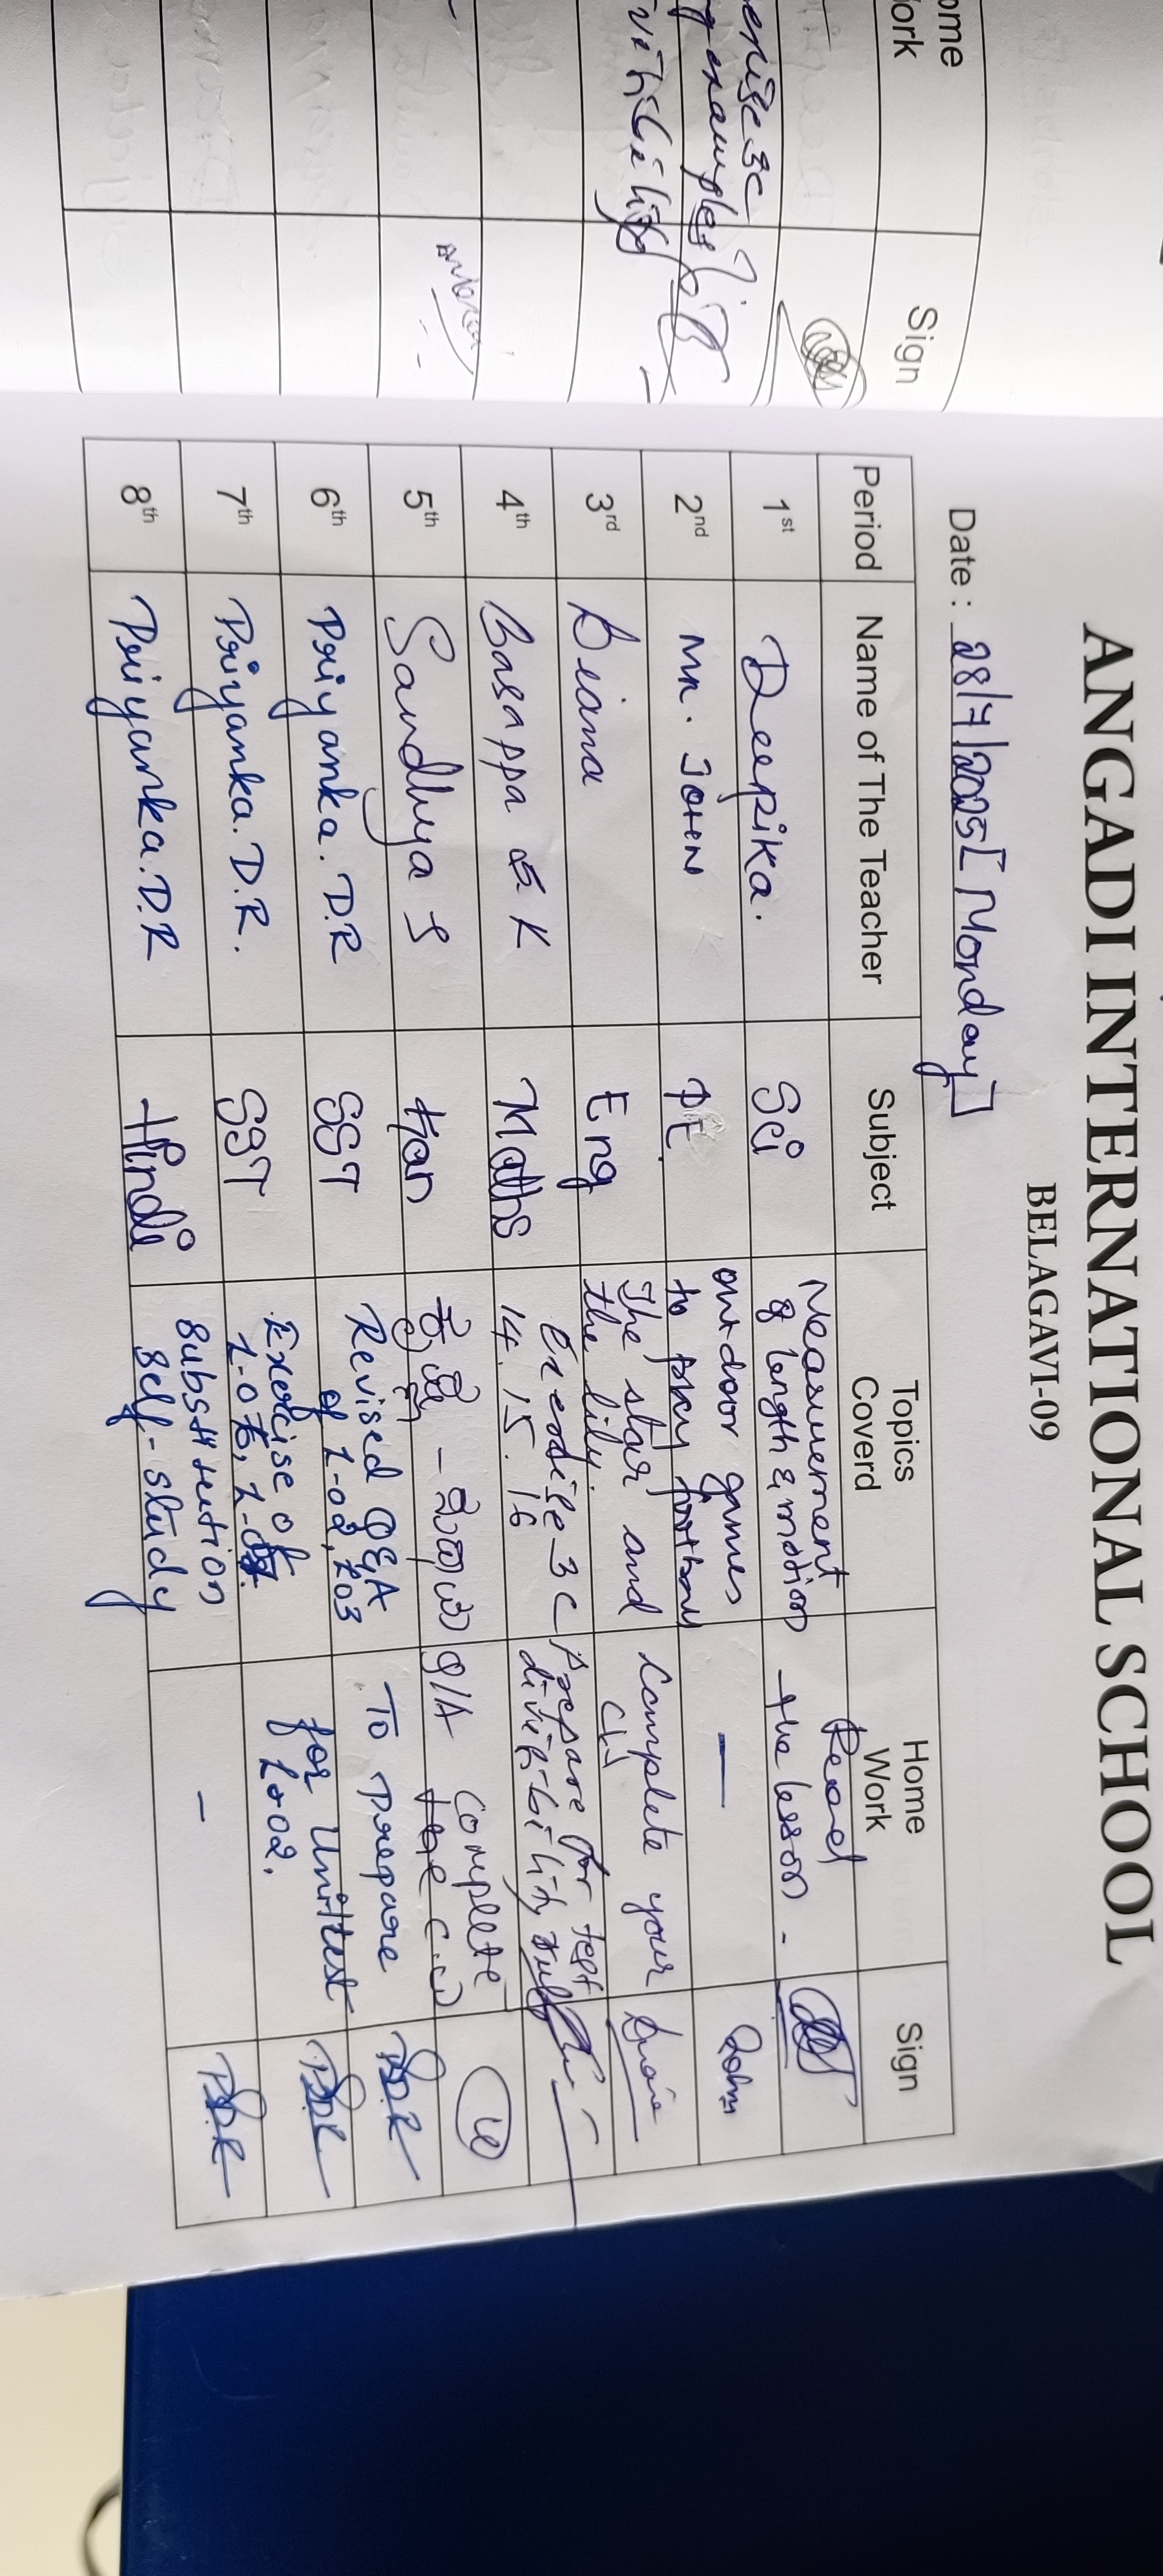 ome
ork
Sign
ANGADI INTERNATIONAL SCHOOL
BELAGAVI-09
Date : 28/7/2025 [Monday]
Period Name of The Teacher Subject Topics Coverd Home Work Sign
1st Deepika. Sci Measurement of length & motion Read the lesson -
2nd Mr. John PE. outdoor games to play —
3rd Diana Eng The star and the lily. Complete your CW
4th Basappa K Maths Exercise 3C 14. 15. 16 prepare for test divisibility
5th Sandhya S Kan Q/A Complete the C.W
6th Priyanka. D.R SST Revised Q&A of L-02, L03 To prepare
7th Priyanka. D.R. SST Exercise of for Unittest L-02.
8th Priyanka. D.R Hindi Substitution self-study -